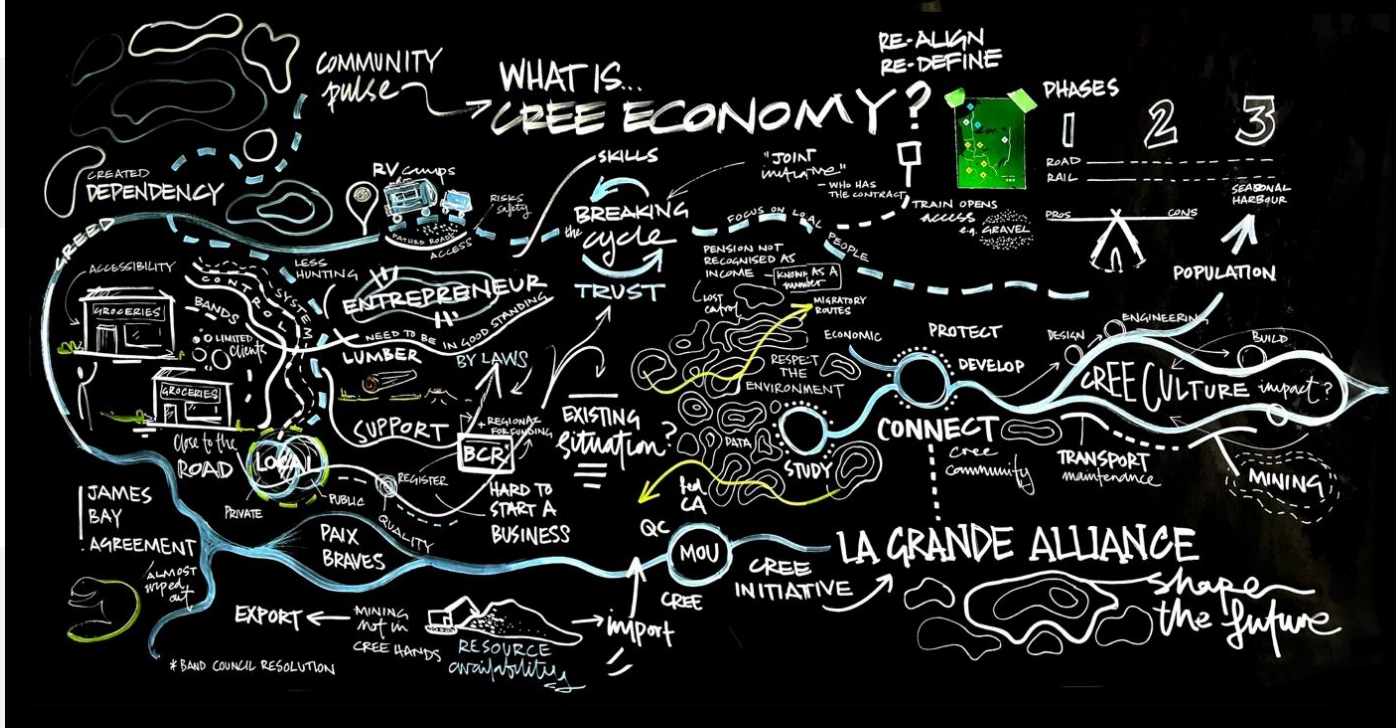 COMMUNITY
pulse
WHAT IS...
CREE ECONOMY?
RE-ALIGN
RE-DEFINE
PHASES
1 2 3
ROAD
RAIL
SEASONAL
HARBOUR
PROS
CONS
POPULATION
CREATED
DEPENDENCY
GREED
RV camps
PATHED ROADS
ACCESS
RISKS
safety
SKILLS
BREAKING
the cycle
TRUST
"JOINT
initiative"
- WHO HAS
THE CONTRACT
FOCUS ON LOCAL PEOPLE
TRAIN OPENS
ACCESS
e.g. GRAVEL
PENSION NOT
RECOGNISED AS
INCOME
KNOWN AS A
number
LOST
MIGRATORY
ROUTES
ACCESSIBILITY
GROCERIES
GROCERIES
Close to the
ROAD
BANDS
CONTROL
SYSTEM
LIMITED
clients
LESS
HUNTING
ENTREPRENEUR
NEED TO BE IN GOOD STANDING
LUMBER
BY LAWS
SUPPORT
+ REGIONAL
FOR FUNDING
BCR*
LOCAL
PRIVATE
PUBLIC
REGISTER
QUALITY
HARD TO
START A
BUSINESS
EXISTING
situation?
RESPECT
THE
ENVIRONMENT
DATA
STUDY
ECONOMIC
PROTECT
DEVELOP
CONNECT
cree
community
DESIGN
ENGINEERING
BUILD
CREE CULTURE impact?
TRANSPORT
maintenance
MINING
JAMES
BAY
AGREEMENT
ALMOST
wiped
out
PAIX
BRAVES
fed
CA
QC
MOU
CREE
CREE
INITIATIVE
LA GRANDE ALLIANCE
shape
the future
EXPORT
MINING
not in
CREE HANDS
RESOURCE
availability
import
*BAND COUNCIL RESOLUTION